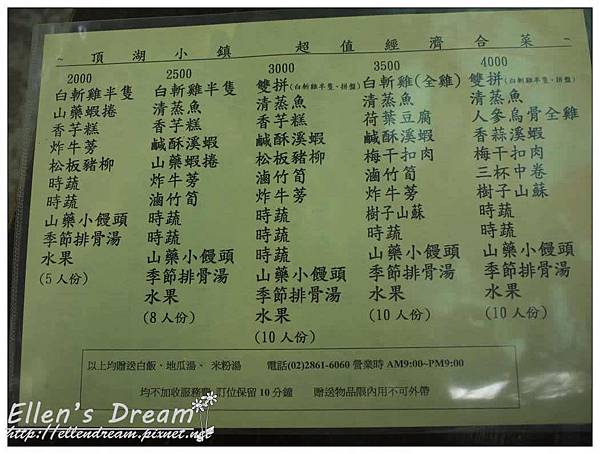 ~ 頂湖小鎮 超值經濟合菜 ~
2000
白斬雞半隻
山藥蝦捲
香芋糕
炸牛蒡
松板豬柳
時蔬
時蔬
山藥小饅頭
季節排骨湯
水果
(5人份)
2500
白斬雞半隻
清蒸魚
香芋糕
鹹酥溪蝦
山藥蝦捲
炸牛蒡
滷竹筍
時蔬
時蔬
山藥小饅頭
季節排骨湯
水果
(8人份)
3000
雙拼(白斬雞半隻、拼盤)
清蒸魚
香芋糕
鹹酥溪蝦
松板豬柳
滷竹筍
炸牛蒡
時蔬
時蔬
時蔬
山藥小饅頭
季節排骨湯
水果
(10人份)
3500
白斬雞(全雞)
清蒸魚
荷葉豆腐
鹹酥溪蝦
梅干扣肉
滷竹筍
炸牛蒡
樹子山蘇
時蔬
時蔬
山藥小饅頭
季節排骨湯
水果
(10人份)
4000
雙拼(白斬雞半隻、拼盤)
清蒸魚
人參烏骨全雞
香蒜溪蝦
梅干扣肉
三杯中卷
樹子山蘇
時蔬
時蔬
山藥小饅頭
季節排骨湯
水果
(10人份)
以上均贈送白飯、地瓜湯、米粉湯 電話(02)2861-6060 營業時 AM9:00~PM9:00
均不加收服務費 訂位保留10分鐘 贈送物品限內用不可外帶
Ellen's Dream
http://ellendream.pixnet.net